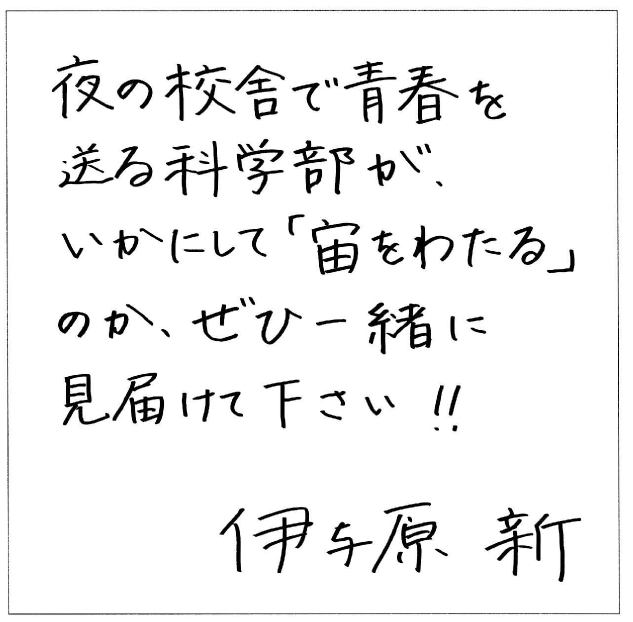 夜の校舎で青春を
送る科学部が、
いかにして「宙をわたる」
のか、ぜひ一緒に
見届けて下さい!!
伊与原 新